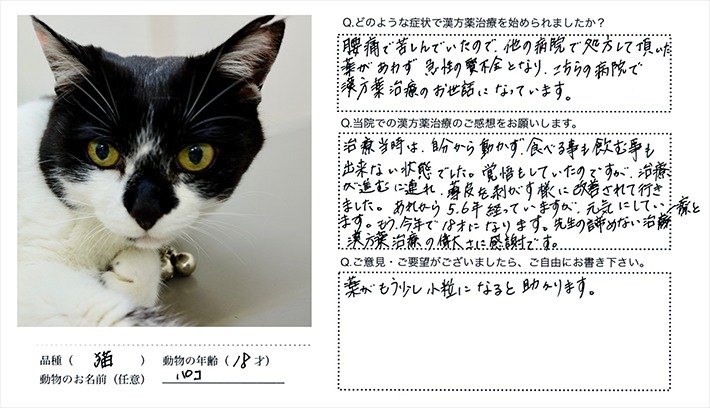 Q.どのような症状で漢方薬治療を始められましたか？
腰痛で苦しんでいたので、他の病院で処方して頂いた
薬があわず 急性の腎不全となり、こちらの病院で
漢方薬治療のお世話になっています。
Q.当院での漢方薬治療のご感想をお願いします。
治療当時は、自分から動かず、食べる事も飲む事も
出来ない状態でした。覚悟もしていたのですが、治療
が進むに連れ、薄皮を剥がす様に改善されて行き
ました。あれから5.6年経っていますが、元気にしてい
ます。もう、今年で18才になります。先生の諦めない治療と
漢方薬治療の偉大さに感謝です。
Q.ご意見・ご要望がございましたら、ご自由にお書き下さい。
薬がもう少し小粒になると助かります。
品種（ 猫 ） 動物の年齢（ 18 才）
動物のお名前（任意） ハロコ